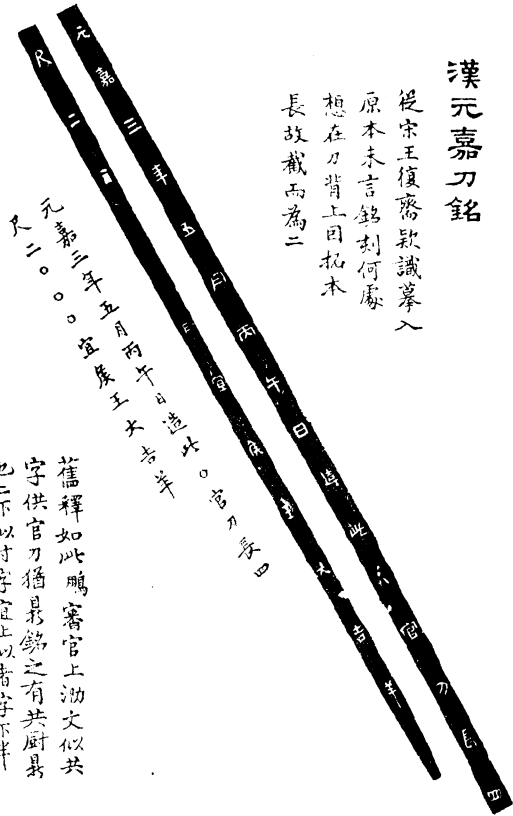 漢元嘉刀銘
從宋王復齋欵識摹入
原本未言銘刻何處
想在刀背上因拓本
長故截而為二
元嘉三年五月丙午日造此 官刀長四
尺二 宜矦王大吉羊
元嘉三年五月丙午日造此〇官刀長四
尺二〇〇〇宜矦王大吉羊
舊釋如此鵬審官上泐文似共
字供官刀猶鼎銘之有共廚鼎
也二下似寸字宜上似者字下半